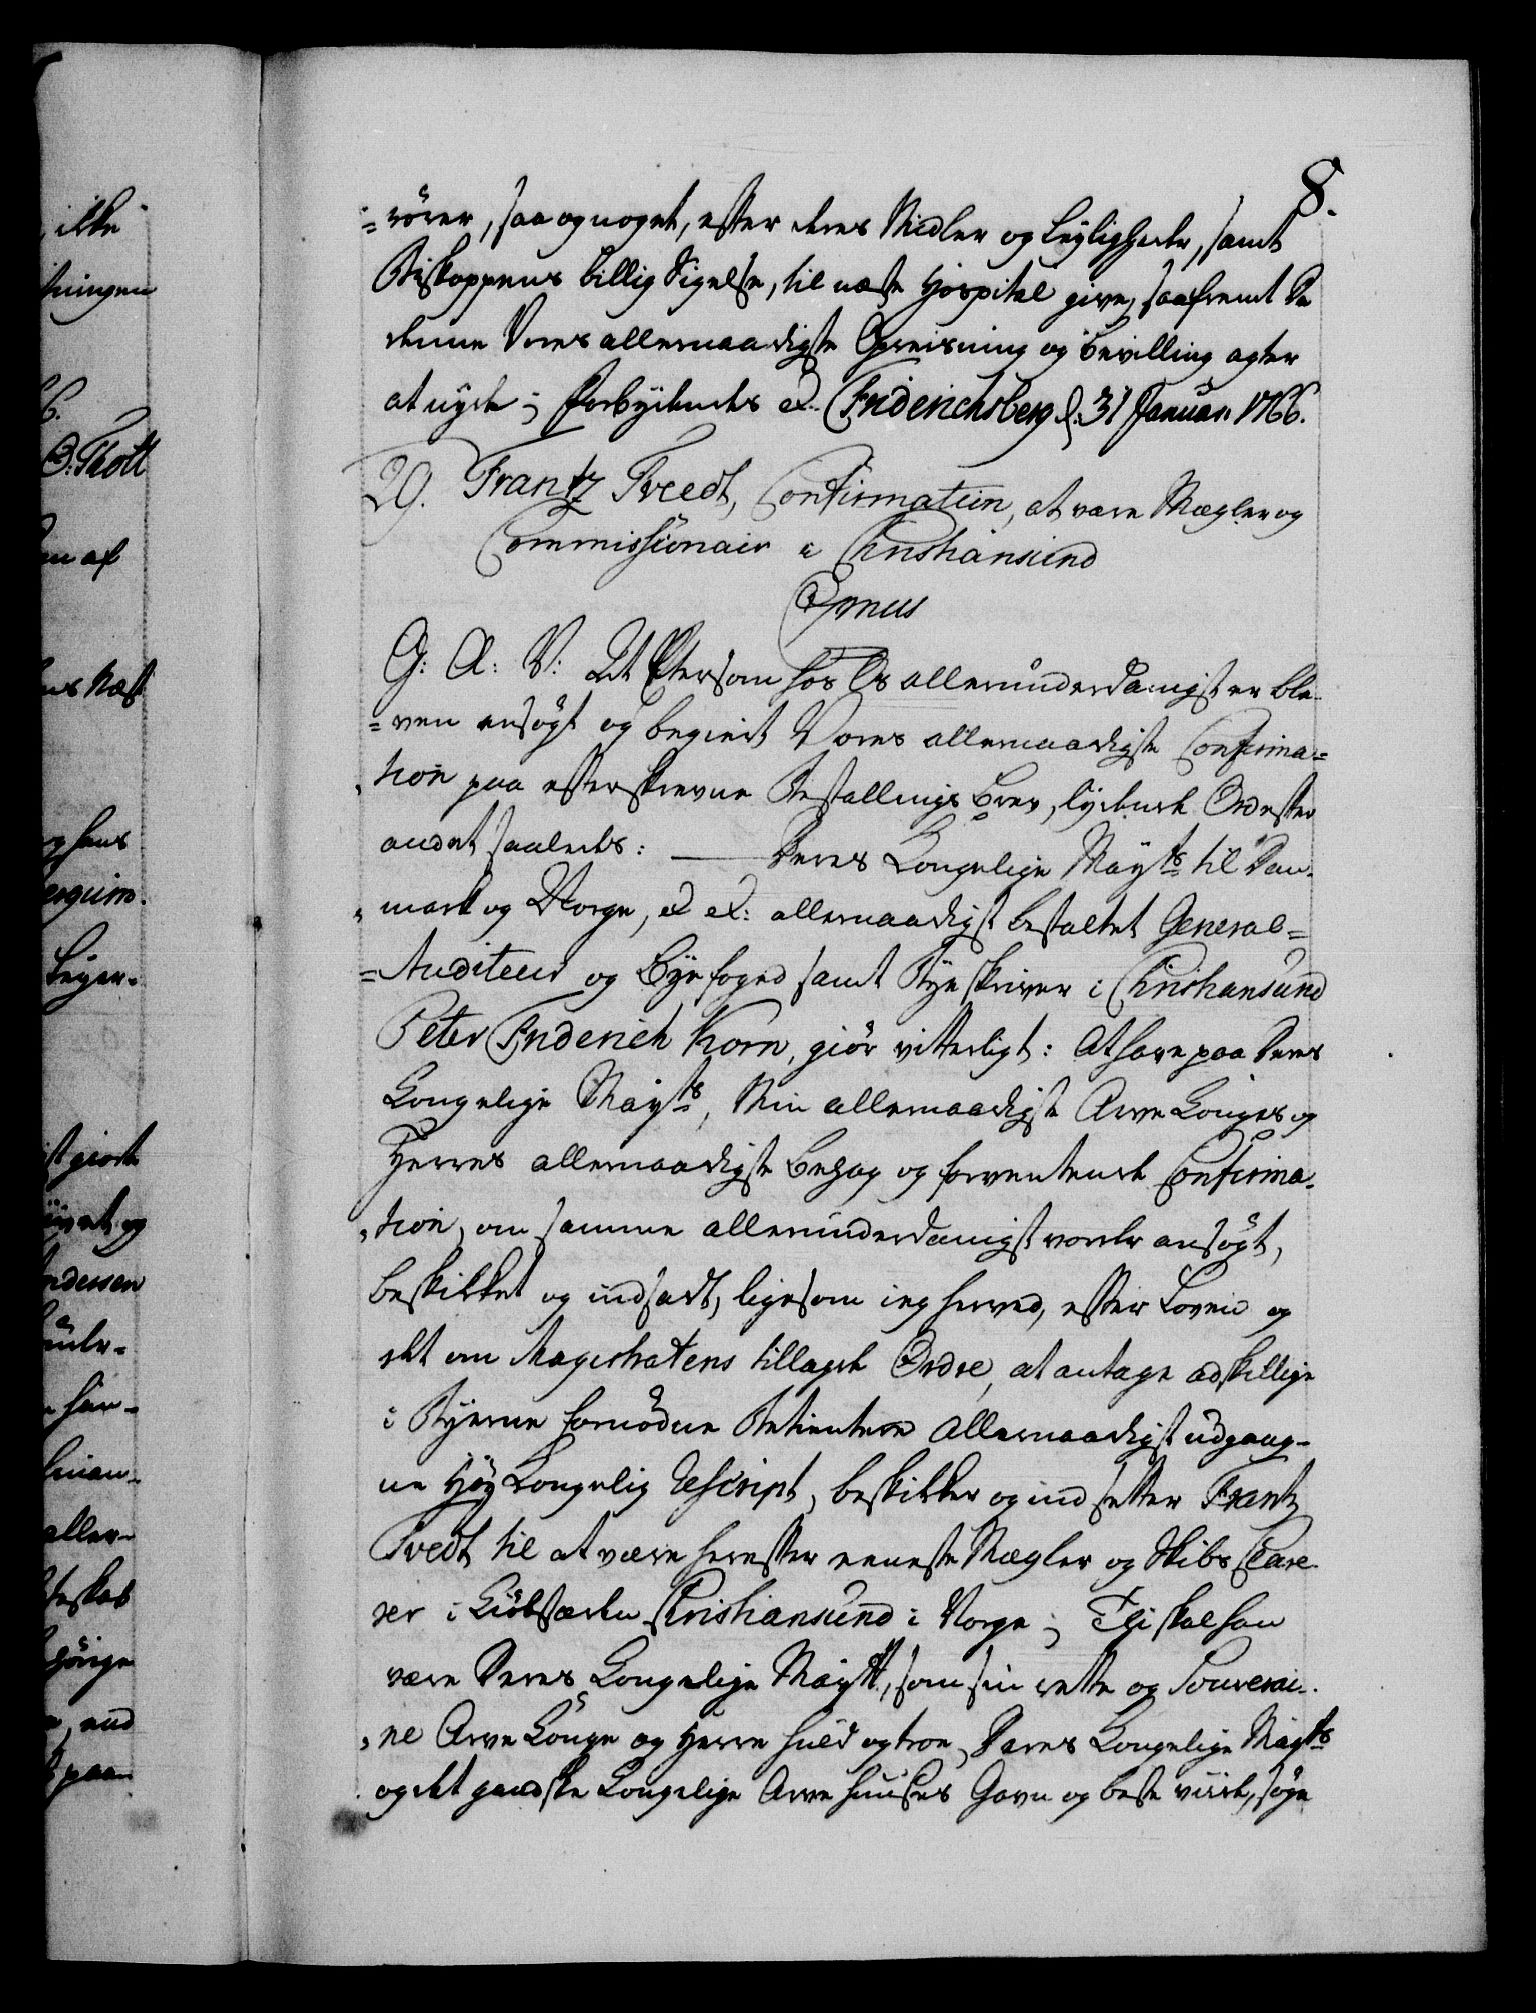 8.
=rörer, saa og noget, efter deres Midler og Leyligheds, samt
Biskoppens billig Sigelse, til næste Hospital give, saafremt De
denne Vores allernaadigste Opreisning og Bevilling agter
at nyde; Forbydendes &. Friderichsberg d: 31 Januar: 1766.
29. Frantz Tvedt, Confirmation, at være Mægler og
Commissionair i Christiansund
G: A: V: At Eftersom hos Os allerunderdanigst er ble-
=ven ansögt og begiert Vores allernaadigste Confirma-
=tion paa efterskrevne Bestallings Brev, lydende Ord efter
andet saaledes: — Deres Kongelige Mayts til Dan-
=mark og Norge, & &: allernaadigst bestaltet General=
=Auditeur og Byefoged samt Byeskriver i Christiansund
Peter Friderich Korn, giör vitterligt: At have paa Deres
Kongelige Mayts, Min allernaadigste Arve Konges og
Herres allernaadigste Behag og forventende Confirma-
=tion, om samme allerunderdanigst vorder ansögt,
beskikket og indsadt, ligesom ieg herved, efter Loven og
det om Magistratens tillagde Ordre, at antage adskillige
i Byerne fornödne Betientere allernaadigst udgang-
ne Höy Kongelig Rescript, beskikker og indsetter Frantz
Tvedt til at være herefter eeneste Mægler og Skibs Clare-
rer i Kiöbstæden Christiansund i Norge; Thi skal han
være Deres Kongelige Maytt, som sin rette og Souverai-
=ne Arve Konge og Herre huld og troe, Deres Kongelige Mayts
og det gandske Kongelige Arve Huuses Gavn og beste viide, söge